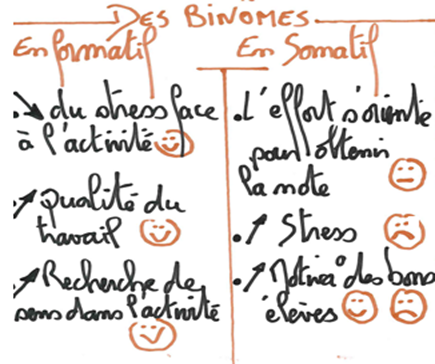 DES BINOMES
En formatif
.↘ du stress face
à l'activité
↗ qualité du
travail
↗ Recherche de
sens dans l'activité
En Somatif
.L'effort s'oriente
pour obtenir
la note
.↗ Stress
.↗ Motiv° des bons
élèves